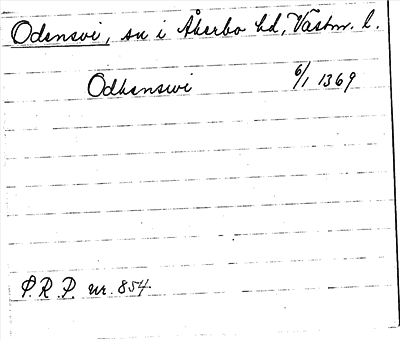 Odensvi, sn i Åkerbo hd, Västm. l.
Odhenswi 6/1 1369
S.R.P. nr. 854.